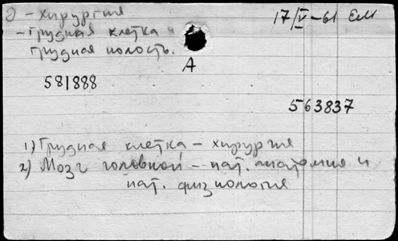 2 - Хирургия
17/V-61 ЕМ
- Грудная клетка и
грудная полость.
А
581888
563837
1) Грудная клетка - хирургия
2) Мозг головной - пат. анатомия и
пат. физиология